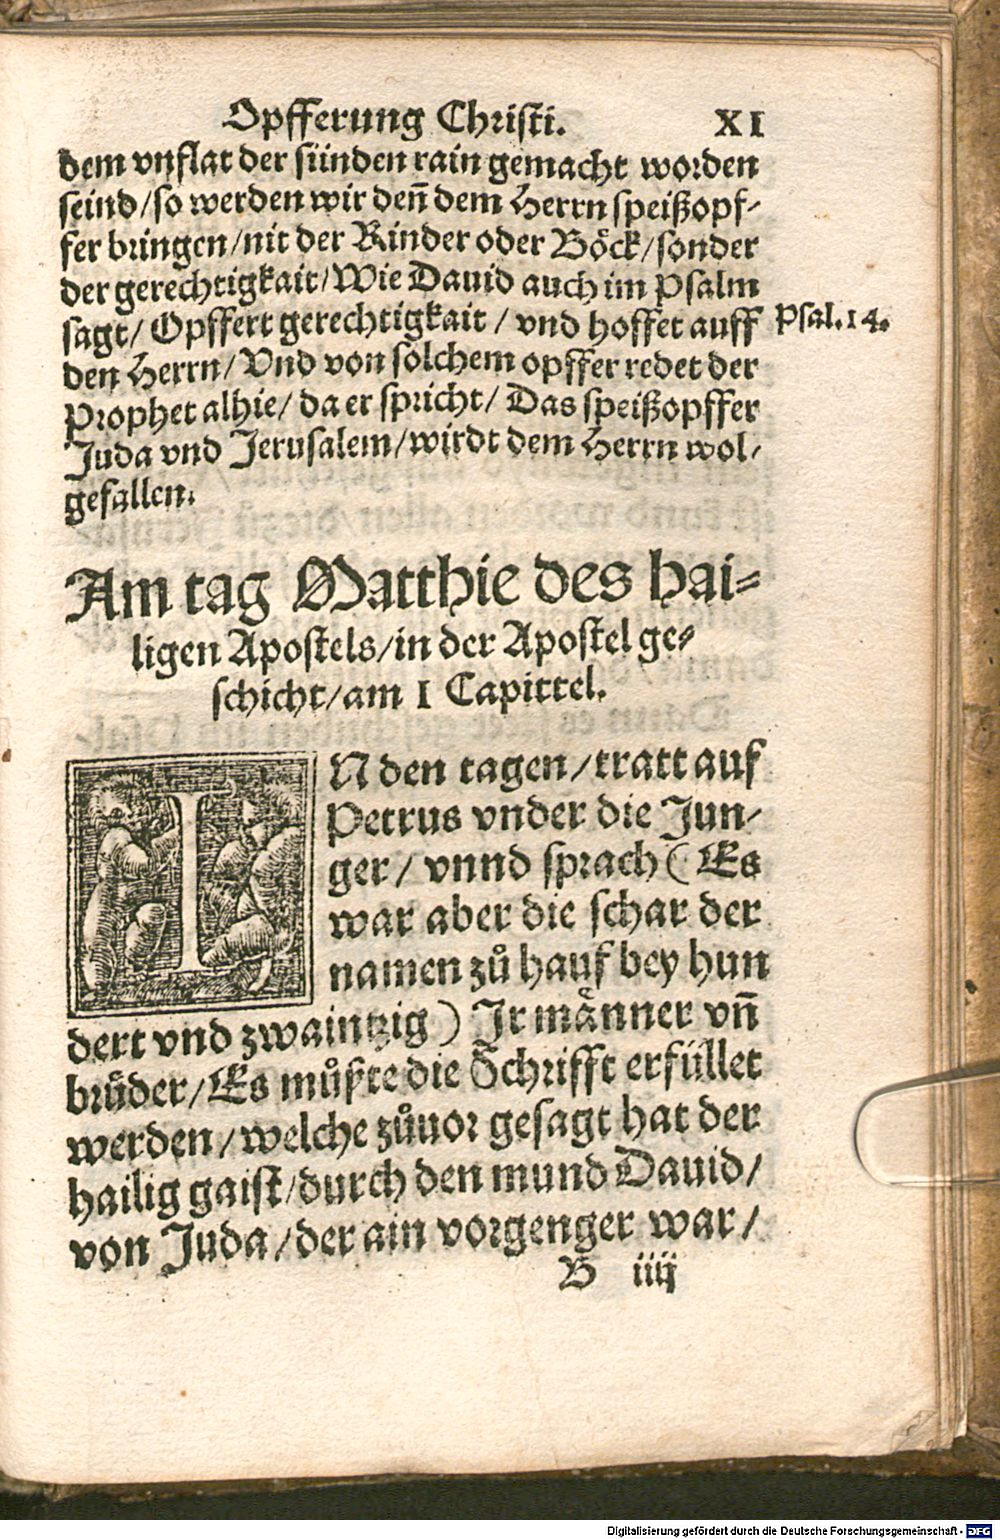 Opfferung Christi. XI
dem vnflat der sünden rain gemacht worden
seind/so werden wir den̄ dem Herrn speißopf-
fer bringen/nit der Rinder oder Böck/sonder
der gerechtigkait/Wie Dauid auch im Psalm
sagt/ Opffert gerechtigkait / vnd hoffet auff
Psal.14.
den Herrn/Vnd von solchem opffer redet der
Prophet alhie/ da er spricht/ Das speißopffer
Juda vnd Jerusalem/wirdt dem Herrn wol-
gefallen.
Am tag Matthie des hai-
ligen Apostels/in der Apostel ge-
schicht/am I Capittel.
IN den tagen/tratt auf
Petrus vnder die Jun-
ger/ vnnd sprach (Es
war aber die schar der
namen zů hauf bey hun
dert vnd zwaintzig) Ir maͤnner vn̄
brůder/Es můßte die Schrifft erfüllet
werden/welche zůuor gesagt hat der
hailig gaist/durch den mund Dauid/
von Juda/der ain vorgenger war/
B iiij
Digitalisierung gefördert durch die Deutsche Forschungsgemeinschaft - DFG